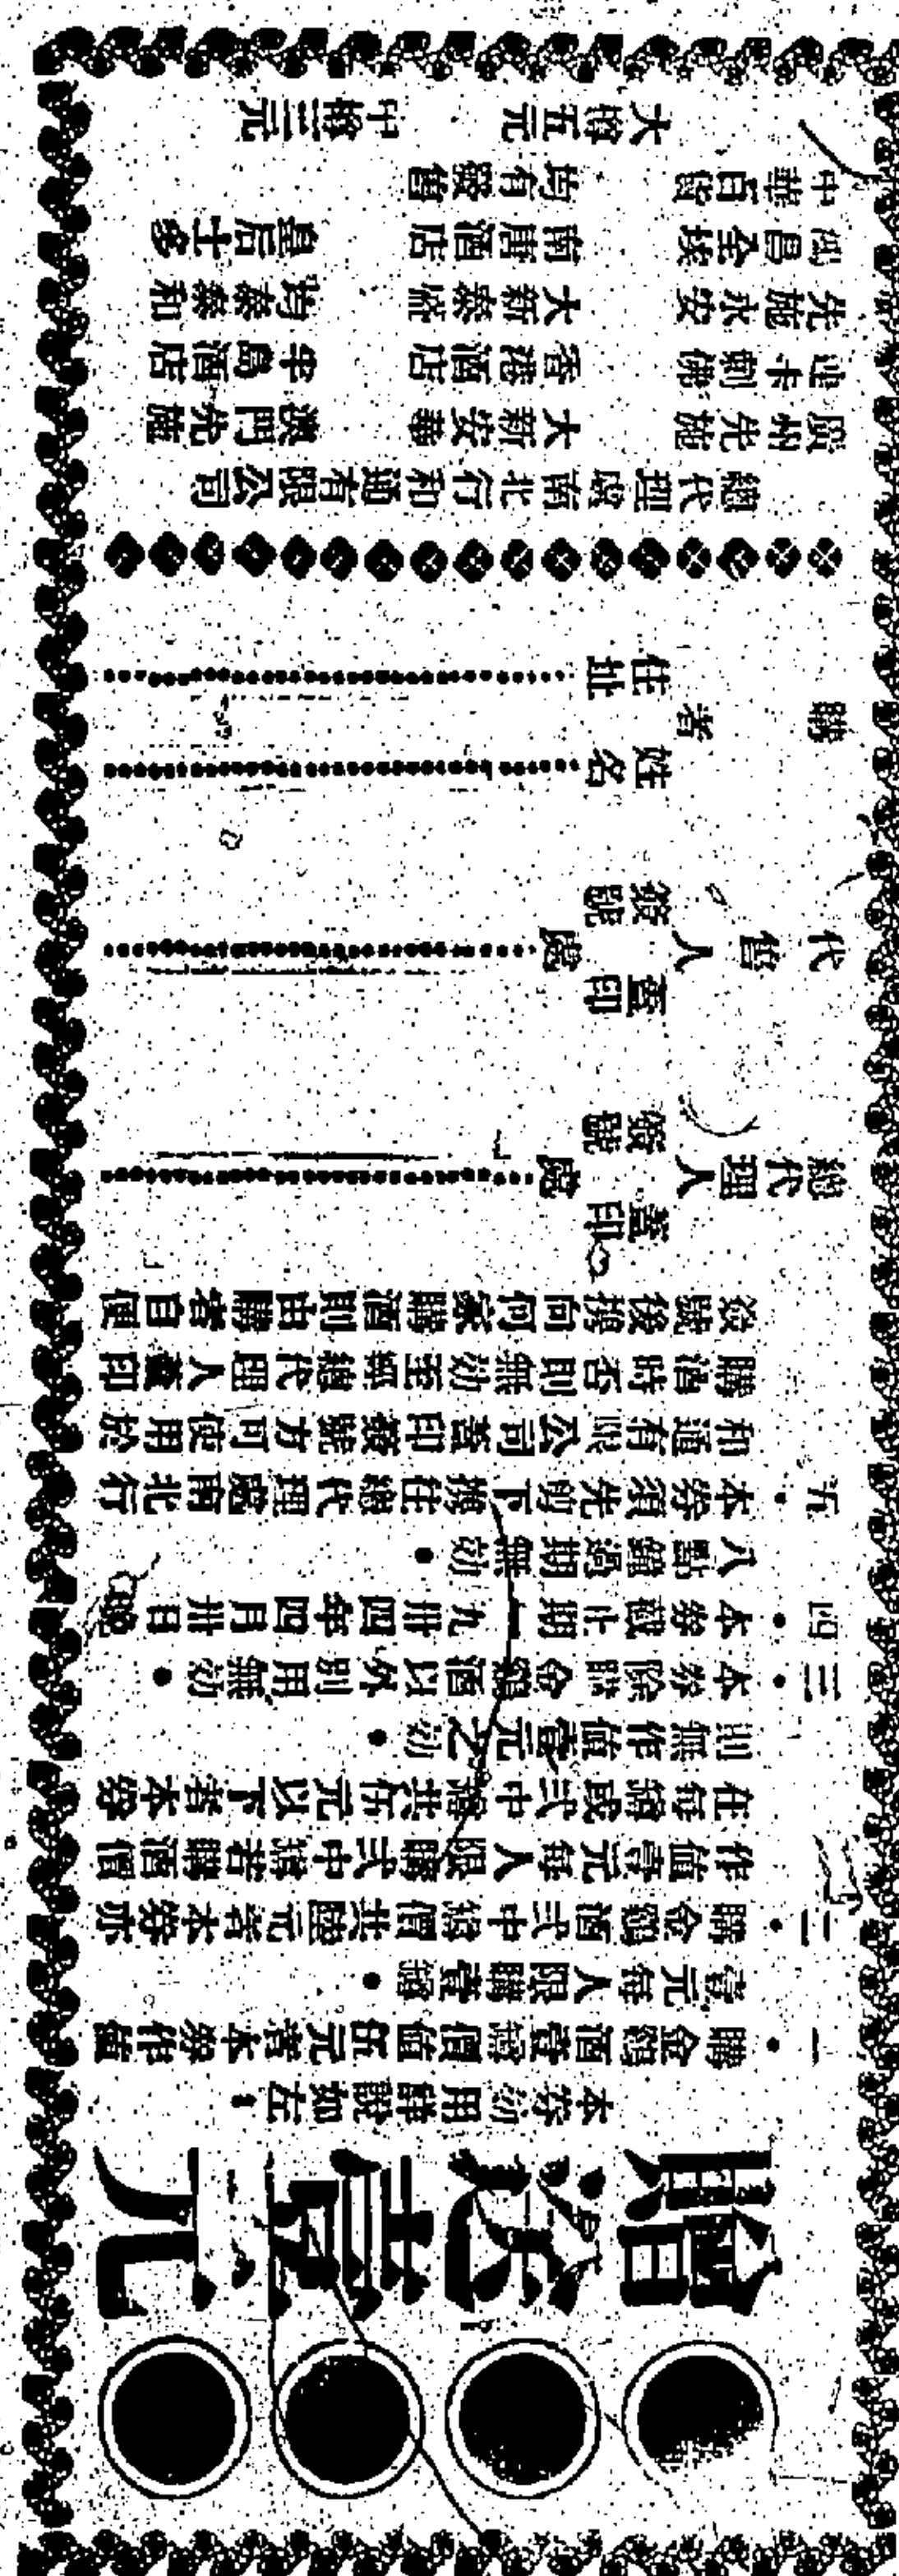 贈送壹元
本券効用詳說如左：
一・購金鶴酒壹罇價值伍元者本券作值
壹元每人限購壹罇・
二・購金鶴酒弍中罇價共陸元者本券亦
作值壹元每人限購弍中罇若購酒價
在每罇或弍中罇共伍元以下者本券
則無作值壹元之効・
三・本券除購金鶴酒以外別用無効・
四・本券截止期一九卅四年四月卅日晚
八點鐘過期無効・
五・本券須先剪下携往總代理處南北行
和通有限公司蓋印簽號方可使用於
購酒時否則無効至經總代理人蓋印
簽號後携向何家購酒則由購者自便
總代理人蓋印簽號處
代售人蓋印簽號處
購者姓名
住址
總代理處南北行和通有限公司
廣州先施 大新 澳門先施
連卡剌佛 香港酒店 半島酒店
先施永安 大新 泰和
酒店 皇后士多
中華百貨 均有發售
大罇五元 中罇三元